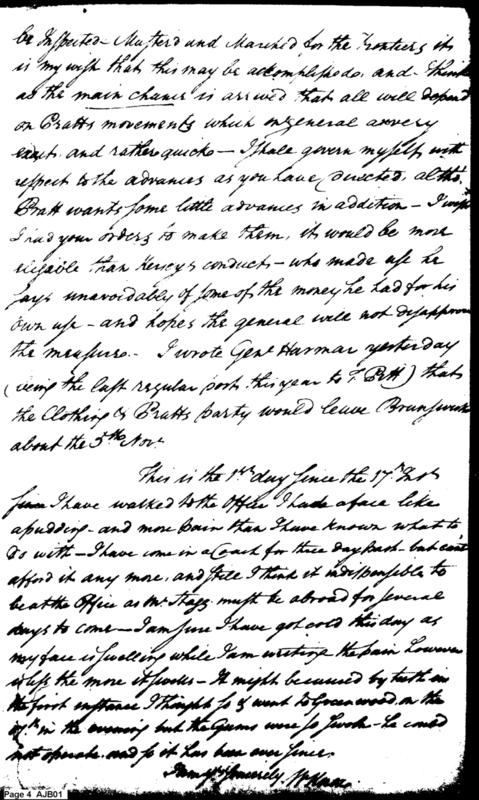 be Inspected - Muster'd and March'd for the Frontiers its
is my wish that this may be accomplished, and - think
as the main chance is arrived that all will depend
on Pratts movements which in general are very
exact, and rather quick - I shall govern myself with
respect to the advances as you have directed, altho'
Pratt wants some little advances in addition - I wish
I had your orders to make them, it would be more
eligible than Kersey's conduct - who made use he
says unavoidably of some of the money he had for his
own use - and hopes the general will not disapprove
the measure. - I wrote Genl Harmar yesterday
(being the last regular post this year to F. Pitt) that
the Clothing & Pratts party would leave Brunswick
about the 5th Novr
This is the 1st day since the 17th Inst
since I have walked to the Office I had a face like
a pudding - and more pain than I have known what to
do with - I have come in a Coach for three days past - but cant
afford it any more, and still I think it indispensible to
be at the Office as Mr Stagg must be abroad for several
days to come - I am sure I have got cold this day as
my face is swelling while I am writing the pain however
is less the more it swells - It might be caused by teeth in
the first instance I thought so & went to Greenwood on the
17th in the evening but the Gums were so swoln - he could
not operate and so it has been ever since.
I am yrs Sincerely W Knox
Page 4 AJB01